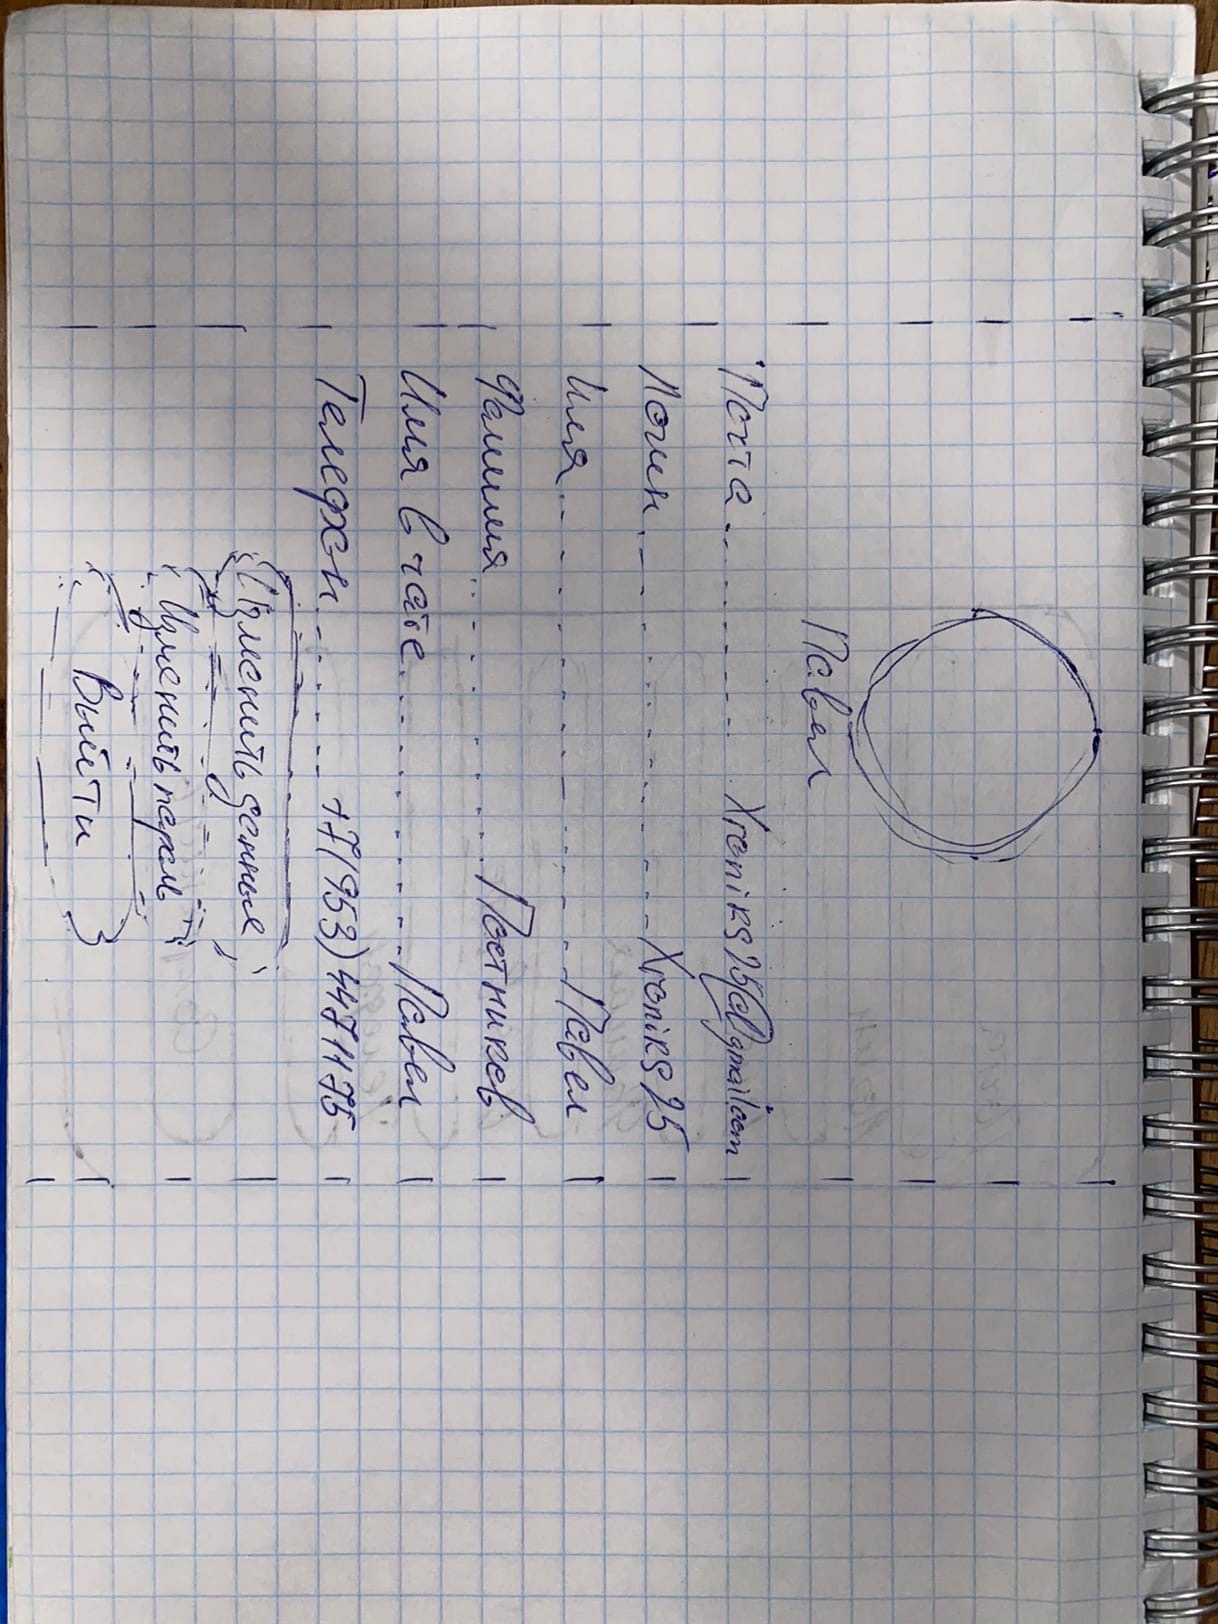 Павел
Почта Xroniks25@gmail.com
Логин Xroniks25
Имя Павел
Фамилия Постников
Имя в чате Павел
Телефон +7(953)4471175
Изменить данные
Изменить пароль
Выйти